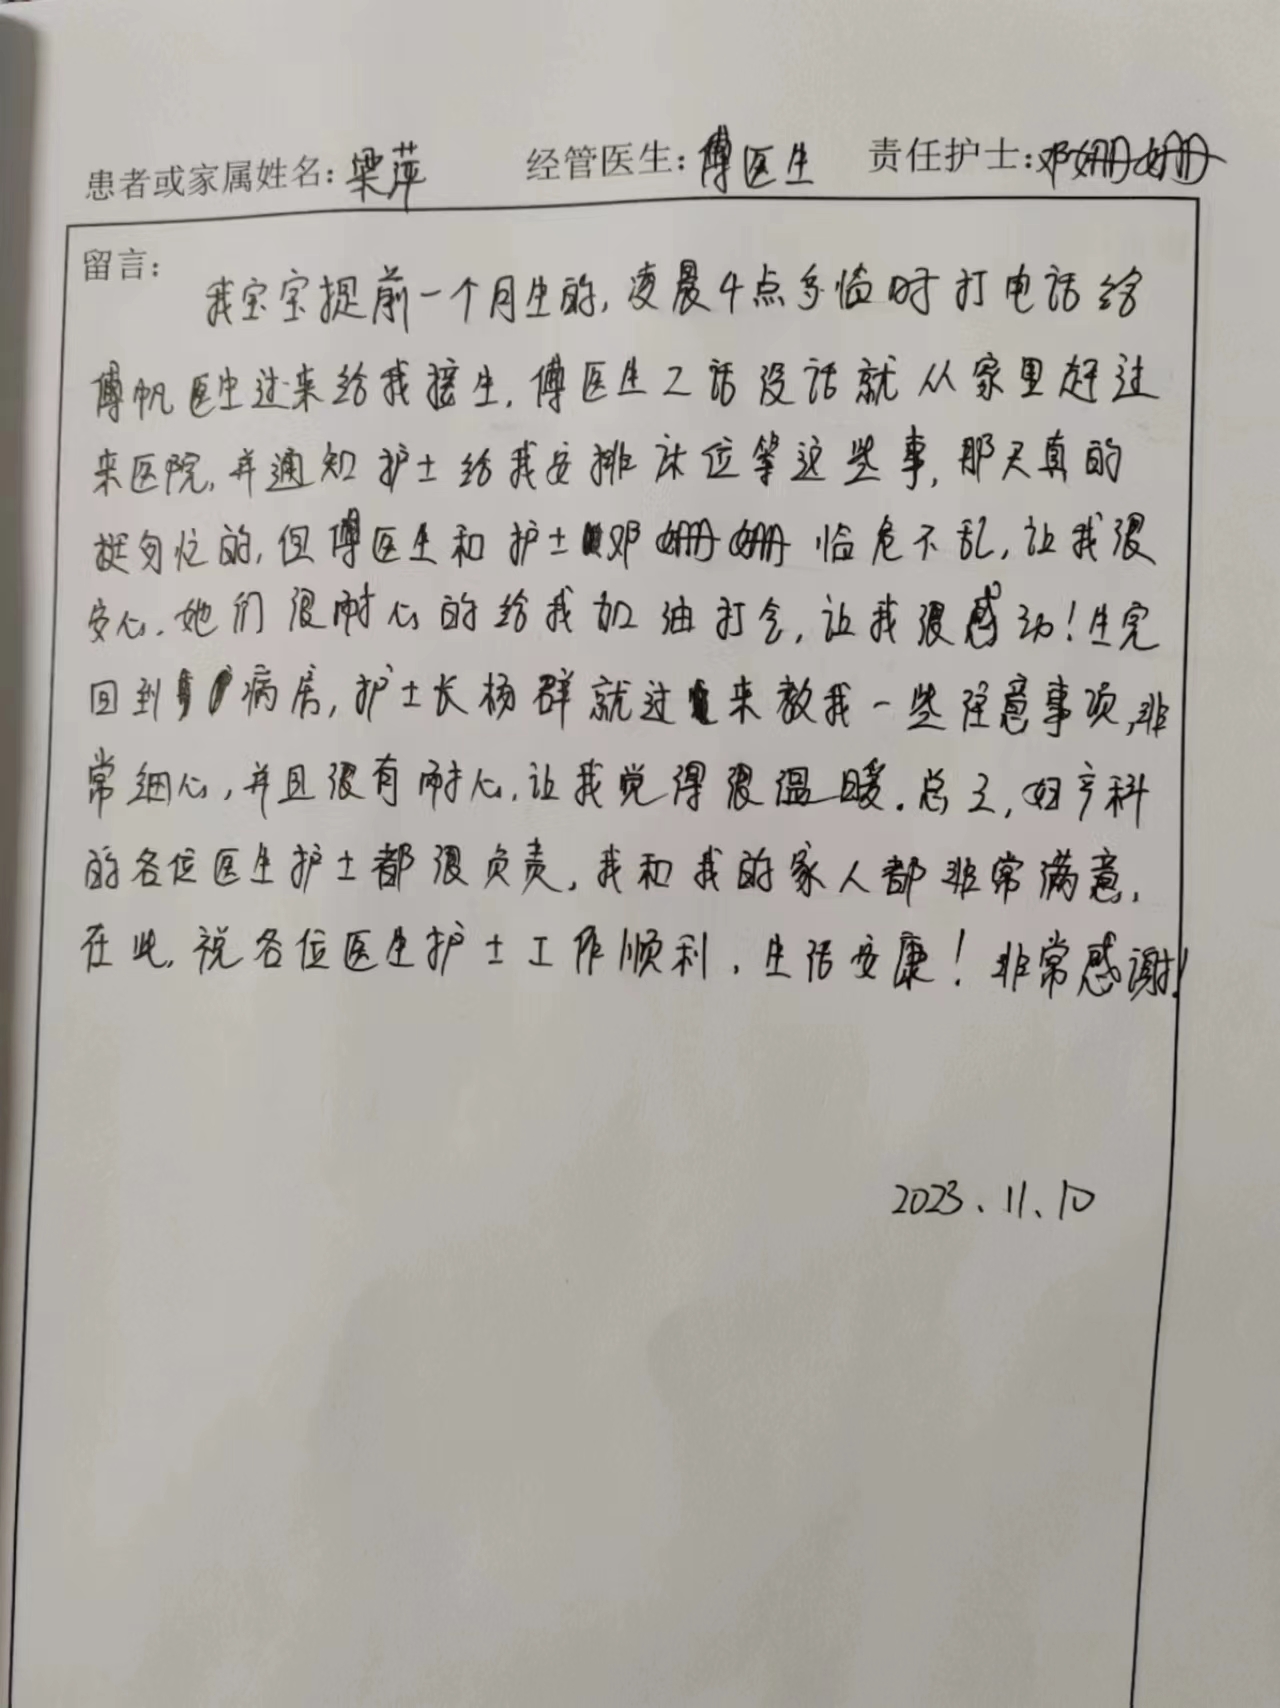 患者或家属姓名：梁萍 经管医生：傅医生 责任护士：邓姗姗
留言：
我宝宝提前一个月生的，凌晨4点多临时打电话给
傅帆医生过来给我接生，傅医生2话没话就从家里赶过
来医院，并通知护士给我安排床位等这些事，那天真的
挺匆忙的，但傅医生和护士邓姗姗临危不乱，让我很
安心，她们很耐心的给我加油打气，让我很感动！生完
回到病房，护士长杨群就过来教我一些注意事项，非
常细心，并且很有耐心，让我觉得很温暖。总之，妇产科
的各位医生护士都很负责，我和我的家人都非常满意，
在此，祝各位医生护士工作顺利，生活安康！非常感谢！
2023、11、10